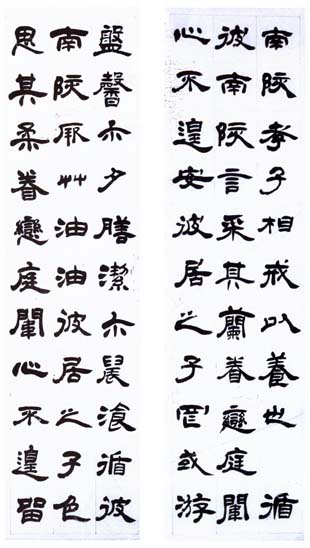 南陔孝子相戒以養也　循
彼南陔言采其蘭眷戀庭闈
心不遑安彼居之子罔或游
盤馨尒夕膳潔尒晨湌循彼
南陔厥艸油油彼居之子色
思其柔眷戀庭闈心不遑留